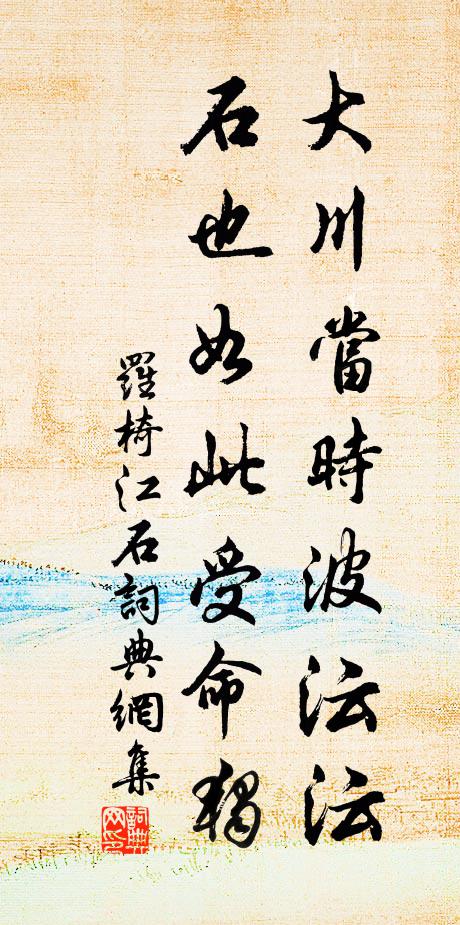 大川當時波沄沄
石也如此受命獨
羅椅江石詞典網集
詞典网印